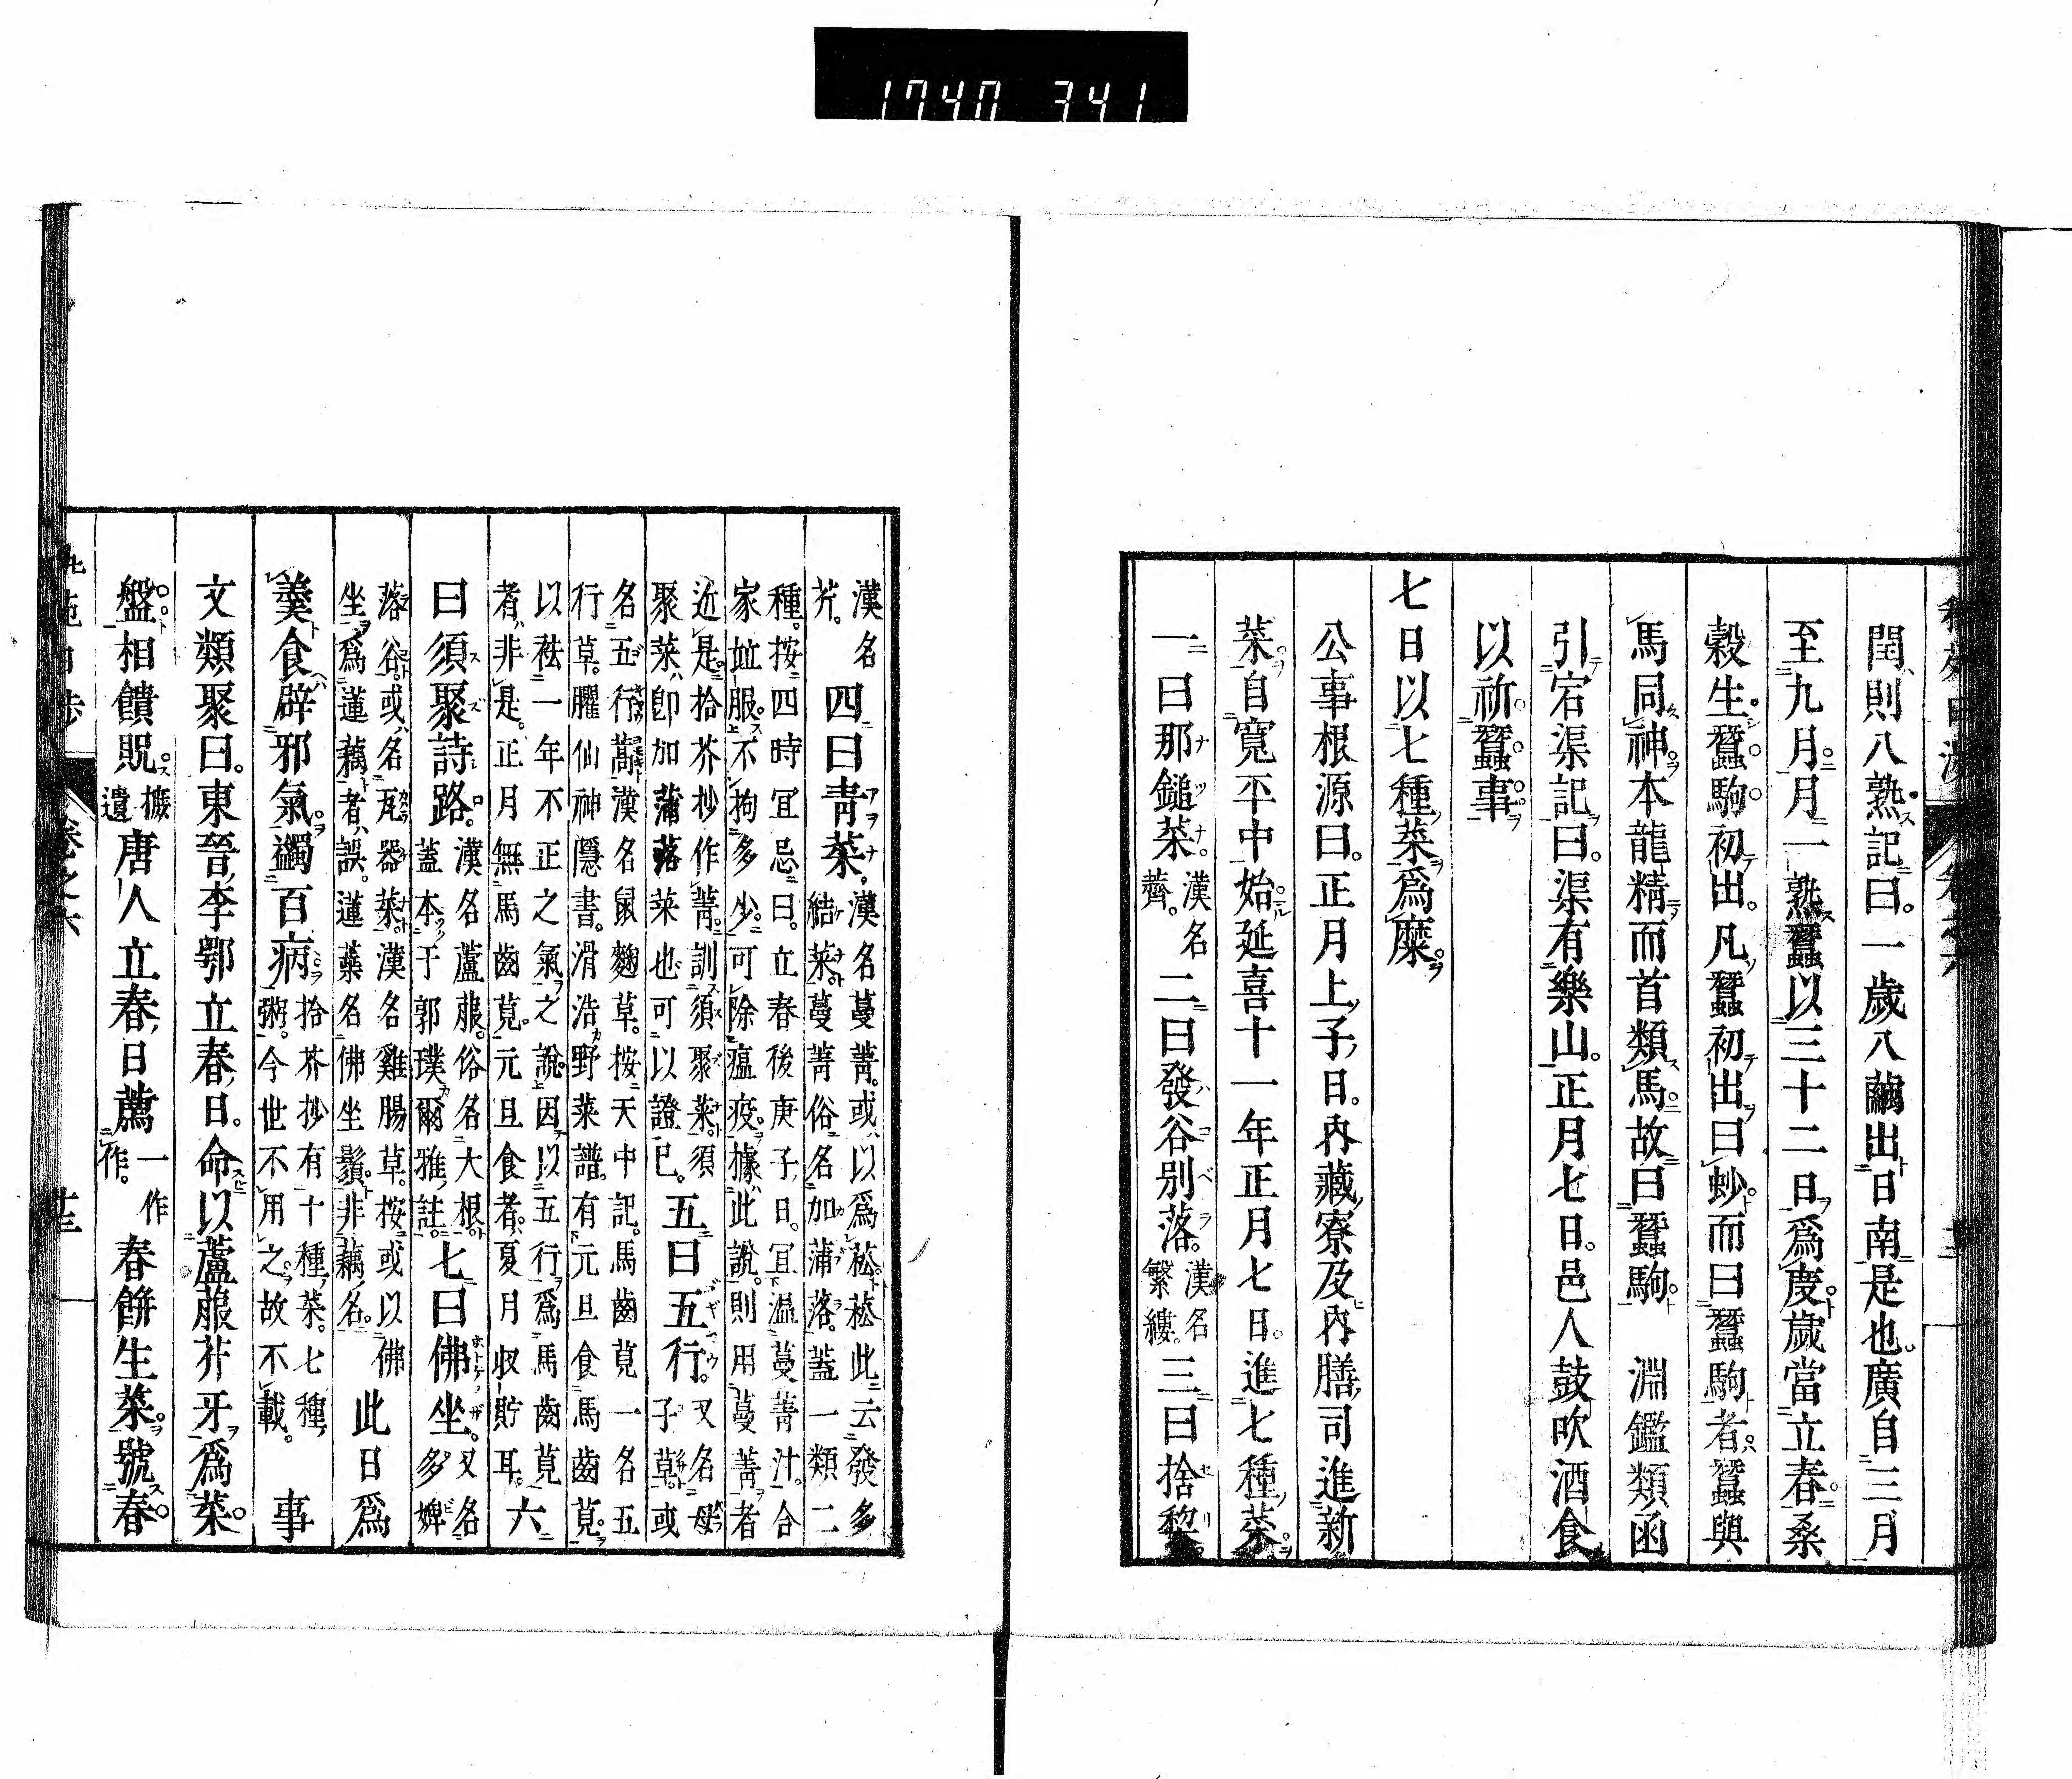 1740 341
閏則八熟記曰。一歳八繭出日南是也廣自三月
至九月月一熟蠶以三十二日爲度歳當立春桑
穀生蠶駒初出。凡蠶初出曰蚴而曰蠶駒者蠶與
馬同神本龍精而首類馬故曰蠶駒 淵鑑類函
引宕渠記曰。渠有樂山。正月七日。邑人鼓吹酒食
以祈蠶事
七日以七種菜爲糜。
公事根源曰。正月上子日。內藏寮及內膳司進新
菜。自寬平中始延喜十一年正月七日。進七種菜
一曰那鎚菜。漢名薺。二曰發谷別落。漢名繁縷。三曰捨黎
漢名芹。四曰靑菜。漢名蔓菁。或以爲菘菘此云發多
結菜蔓菁俗名加蒲落。蓋一類二
種。按四時宜忌曰。立春後庚子日。宜温蔓菁汁。合
家並服不拘多少可除瘟疫據此說。則用蔓菁者
近是拾芥抄作菁訓須聚菜。須
聚菜卽加蒲落菜也可以證已。五曰五行。又名母子草。或
名五行蒿漢名鼠麴草。按天中記。馬齒莧一名五
行草。臞仙神隱書。滑浩野菜譜。有元旦食馬齒莧。
以祛一年不正之氣之說因以五行爲馬齒莧
者非是。正月無馬齒莧。元旦食者夏月收貯耳。六
曰須聚詩路。漢名蘆菔。俗名大根。蓋本于郭璞爾雅註。七曰佛坐。又名多婢
落谷。或名瓦器菜漢名雞腸草。按或以佛
坐爲蓮藕者誤。蓮藥名佛坐鬚非藕名。此日爲
羹食辟邪氣蠲百病拾芥抄有十種菜。七種
粥。今世不用之故不載。 事
文類聚曰。東晉李鄂立春日。命以蘆菔芹牙爲菜。
盤相饋貺摭遺唐人立春日薦一作作。春餅生菜號春
卷之六
廿三